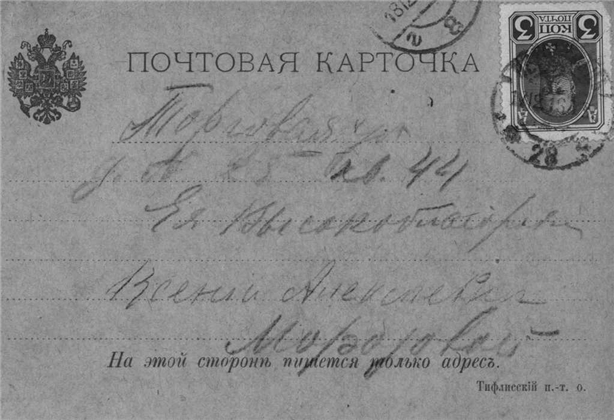 ПОЧТОВАЯ КАРТОЧКА
3 КОП ПОЧТА 3
28
Торговая ул
д. № 25 кв. 44
Ея Высокоблагородiю
Ксенiи Алексеевне
Морозовой
На этой сторонѣ пишется только адресъ.
Тифлисскій п.-т. о.